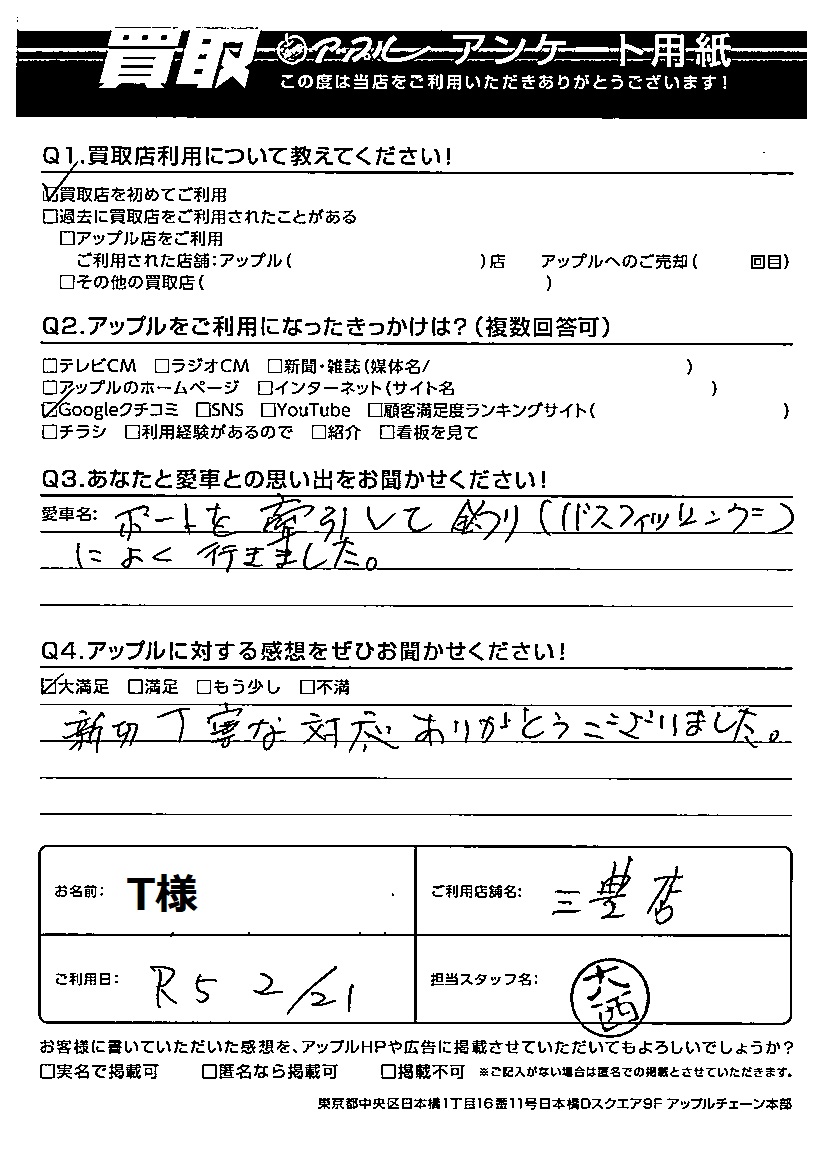 買取 アップル アンケート用紙
この度は当店をご利用いただきありがとうございます!
Q1.買取店利用について教えてください!
☑買取店を初めてご利用
□過去に買取店をご利用されたことがある
□アップル店をご利用
ご利用された店舗:アップル( )店 アップルへのご売却( 回目)
□その他の買取店( )
Q2.アップルをご利用になったきっかけは?(複数回答可)
□テレビCM □ラジオCM □新聞・雑誌(媒体名/ )
□アップルのホームページ □インターネット(サイト名 )
☑Googleクチコミ □SNS □YouTube □顧客満足度ランキングサイト( )
□チラシ □利用経験があるので □紹介 □看板を見て
Q3.あなたと愛車との思い出をお聞かせください!
愛車名: ボートを牽引して釣り(バスフィッシング)
によく行きました。
Q4.アップルに対する感想をぜひお聞かせください!
☑大満足 □満足 □もう少し □不満
新切丁寧な対応ありがとうございました。
お名前: T様 ご利用店舗名: 三豊店
ご利用日: R5 2/21 担当スタッフ名: 大西
お客様に書いていただいた感想を、アップルHPや広告に掲載させていただいてもよろしいでしょうか?
□実名で掲載可 □匿名なら掲載可 □掲載不可 ※ご記入がない場合は匿名での掲載とさせていただきます。
東京都中央区日本橋1丁目16番11号日本橋Dスクエア9F アップルチェーン本部